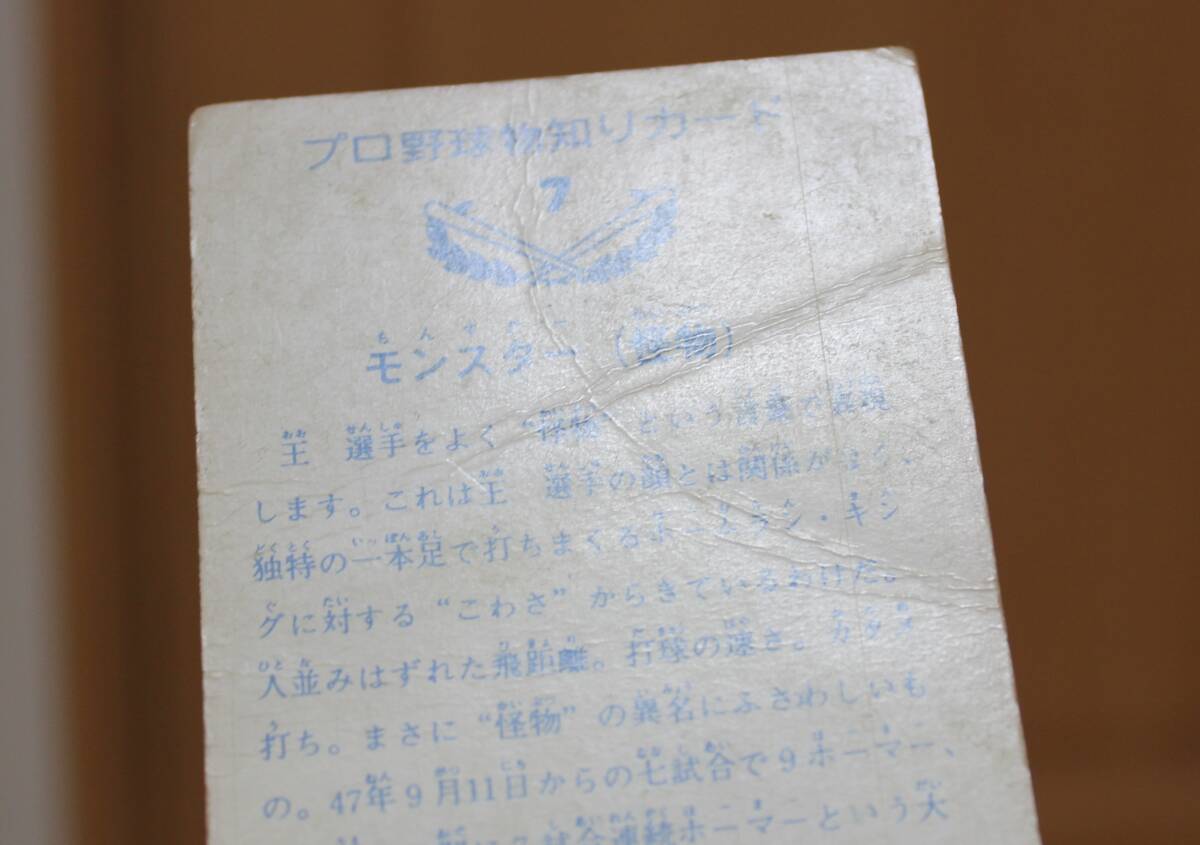 プロ野球物知りカード
7
モンスター（怪物）
王　選手をよく“怪物”という言葉で表現
します。これは王　選手の顔とは関係がなく、
独特の一本足で打ちまくるホームラン・キン
グに対する“こわさ”からきているわけだ。
人並みはずれた飛距離。打球の速さ。カタメ
打ち。まさに“怪物”の異名にふさわしいも
の。47年9月11日からの七試合で9ホーマー、
7試合連続ホーマーという大